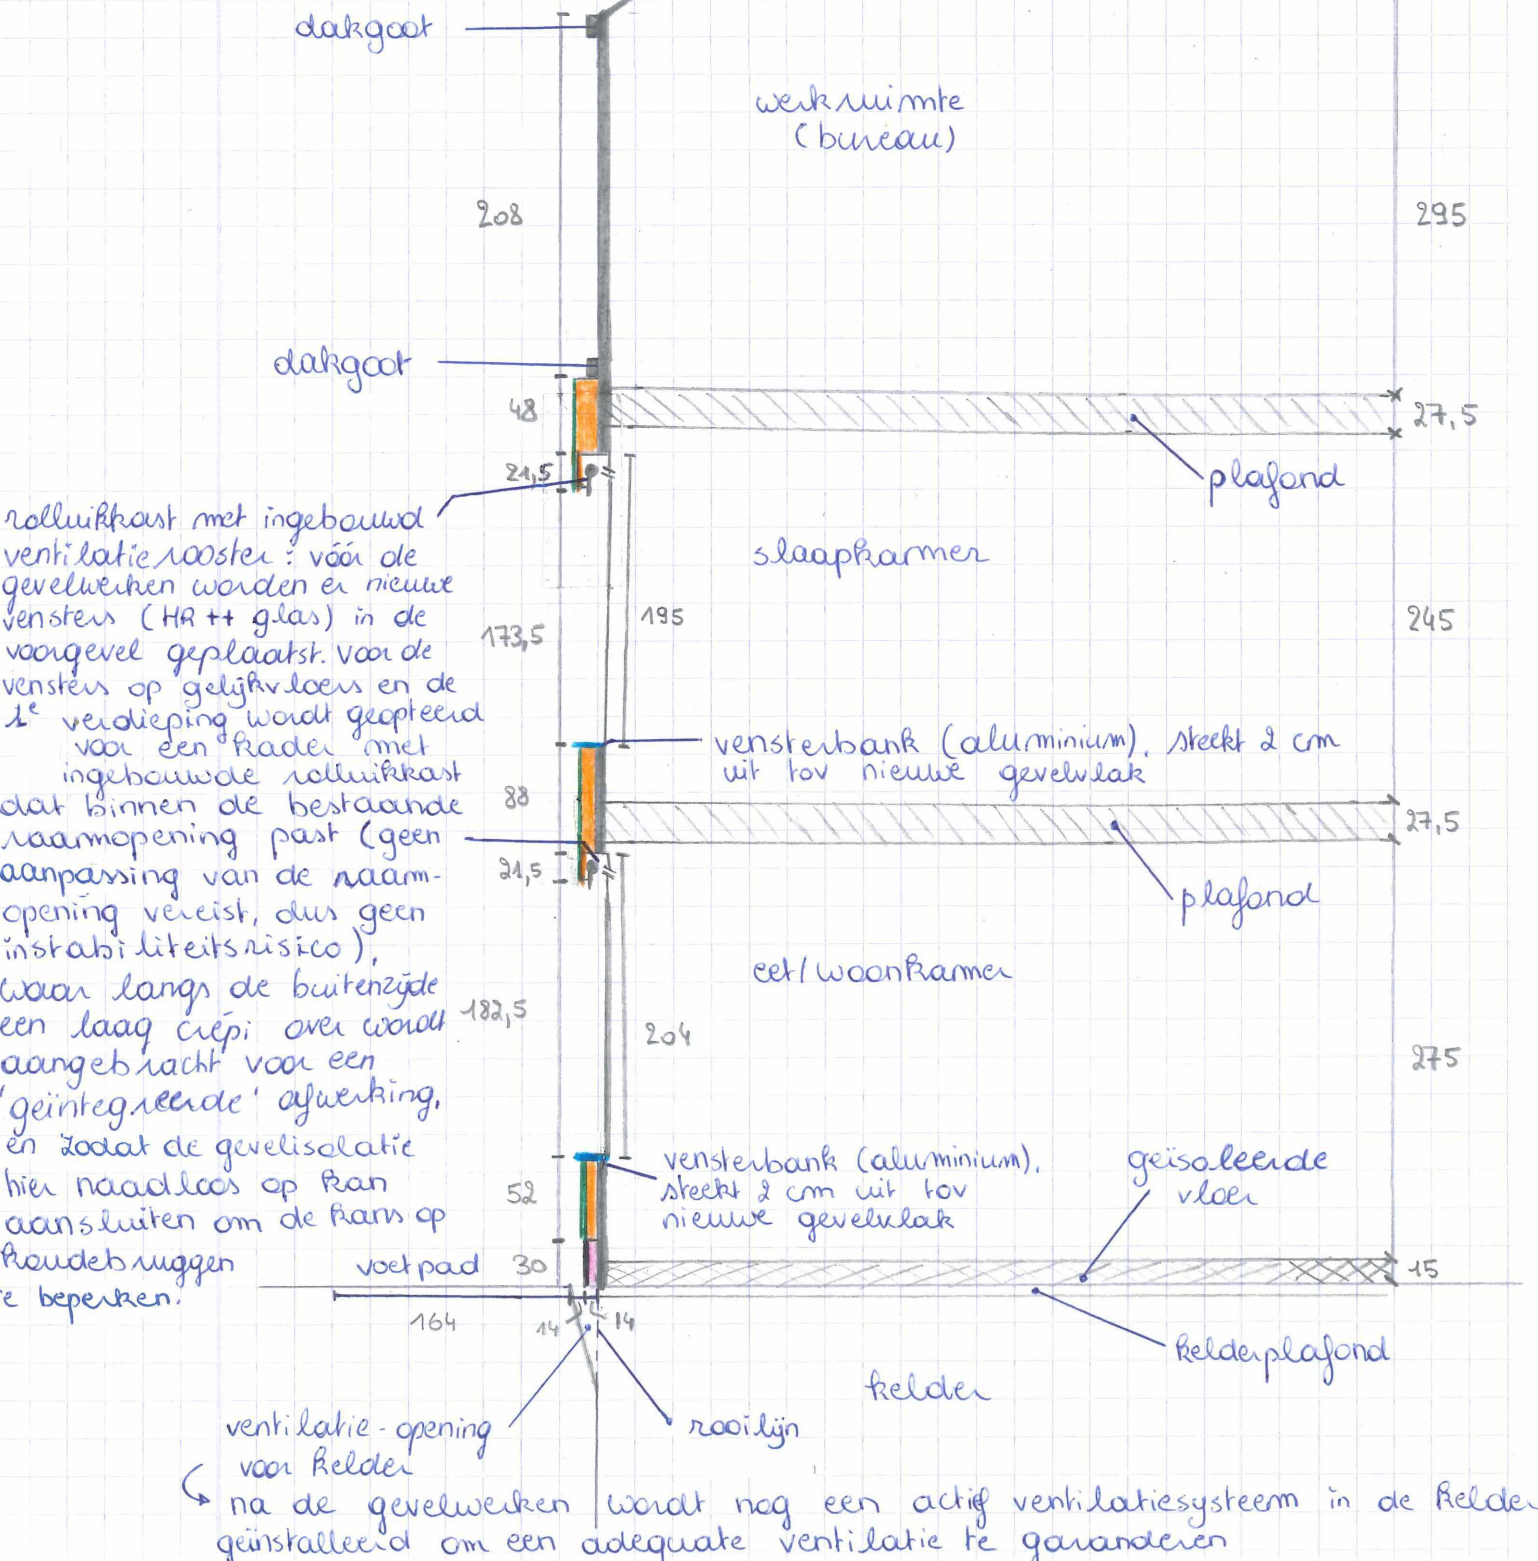 dakgoot
werkruimte
(bureau)
208
295
dakgoot
48
27,5
21,5
plafond
rolluikkast met ingebouwd
ventilatierooster : vóór de
gevelwerken worden er nieuwe
vensters (HR ++ glas) in de
voorgevel geplaatst. Voor de
vensters op gelijkvloers en de
1e verdieping wordt geopteerd
voor een kader met
ingebouwde rolluikkast
dat binnen de bestaande
raamopening past (geen
aanpassing van de raam-
opening vereist, dus geen
instabiliteitsrisico),
waar langs de buitenzijde
een laag crépi over wordt
aangebracht voor een
'geïntegreerde' afwerking,
en zodat de gevelisolatie
hier naadloos op kan
aansluiten om de kans op
koudebruggen
te beperken.
slaapkamer
173,5
195
245
vensterbank (aluminium), steekt 2 cm
uit tov nieuwe gevelvlak
88
27,5
21,5
plafond
eet/woonkamer
182,5
204
275
vensterbank (aluminium),
steekt 2 cm uit tov
nieuwe gevelvlak
geïsoleerde
vloer
52
voetpad
30
15
164
14
14
kelderplafond
kelder
ventilatie-opening
voor kelder
rooilijn
na de gevelwerken wordt nog een actief ventilatiesysteem in de kelder
geïnstalleerd om een adequate ventilatie te garanderen